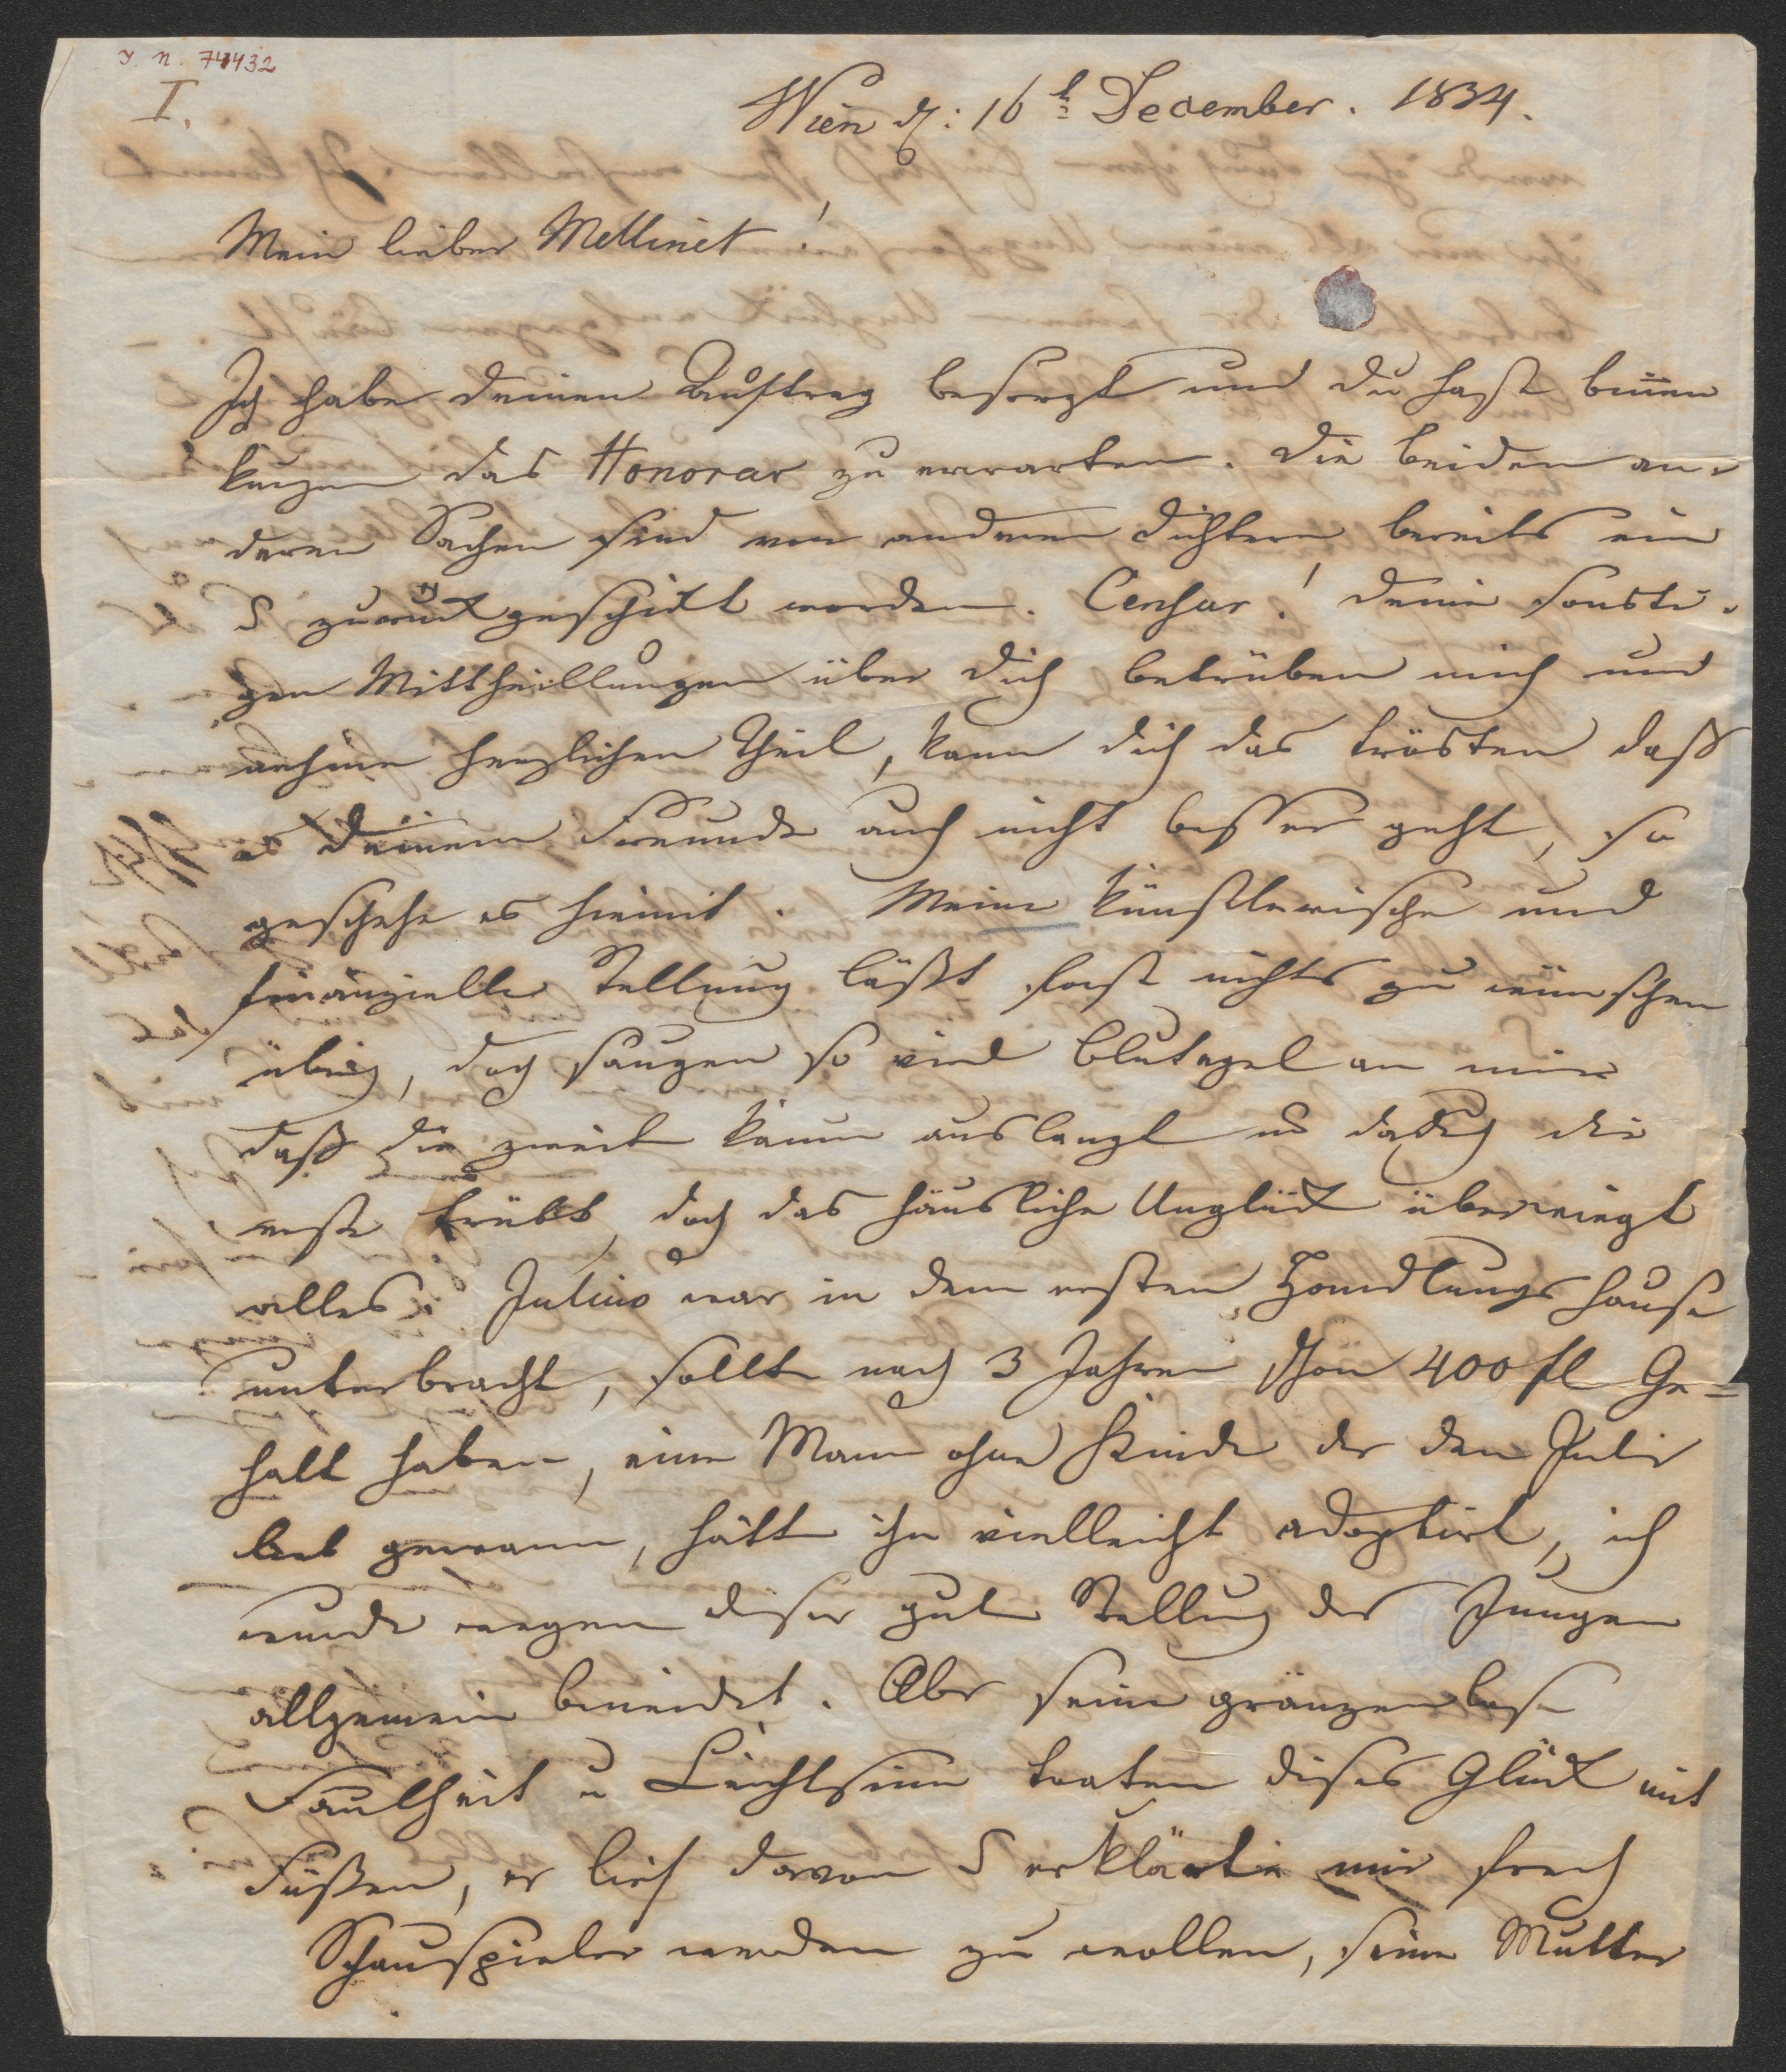 J. N. 74432
I.
Wien d: 16t December. 1834.
Mein lieber Mellinet!
Ich habe deinen Auftrag besorgt und du hast binnen
kurzen das Honorar zu erwarten. Die beiden an-
deren Sachen sind von anderen Dichtern bereits ein
u zurückgeschikt worden. Censur! Deine sonsti-
gen Mittheillungen über dich betrüben mich und
nehme herzlichen Theil, kann dich das trösten daß
es deinem Freunde auch nicht besser geht, so
geschehe es hiemit. Meine künstlerische und
finanzielle Stellung läßt fast nichts zu wünschen
übrig, doch saugen so viel Blutegel an mir
daß die zweite kaum auslangt u dadurch die
erste trübt, doch das häusliche Unglück überwiegt
alles. Julius war in dem ersten Handlungshause
unterbracht, sollte nach 3 Jahren schon 400 fl Ge-
halt haben, ein Mann ohne Kinder der den Julius
lieb gewann, hätte ihn vielleicht adoptirt, ich
wurde wegen dieser guten Stellung des Jungen
allgemein beneidet. Aber seine gränzenlose
Faulheit u Leichtsinn traten dises Glück mit
Füßen, er lief davon u erklärte mir frech
Schauspieler werden zu wollen, seine Mutter